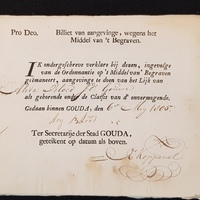 Pro Deo. Billiet van aangevinge, wegens het
Middel van 't Begraven.
IK ondergeschreve verklare bij deezen, ingevolge
van de Ordonnantie op 't Middel van Begraven
geëmaneert, aangevinge te doen van het Lijk van
als gehorende onder de Classis van d' onvermogende.
Gedaan binnen GOUDA, den 6 May 1805.
Ter Secretarije der Stad GOUDA,
geteikent op datum als boven.